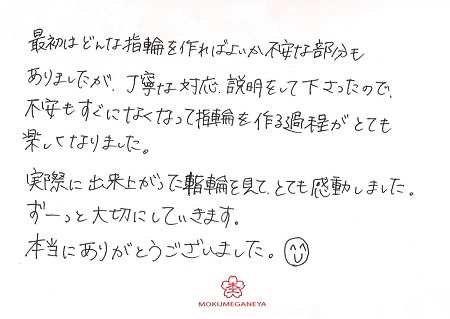 最初はどんな指輪を作ればよいか不安な部分も
ありましたが、丁寧な対応、説明をして下さったので、
不安もすぐになくなって指輪を作る過程がとても
楽しくなりました。
実際に出来上がった指輪を見て、とても感動しました。
ずーっと大切にしていきます。
本当にありがとうございました。
MOKUMEGANEYA